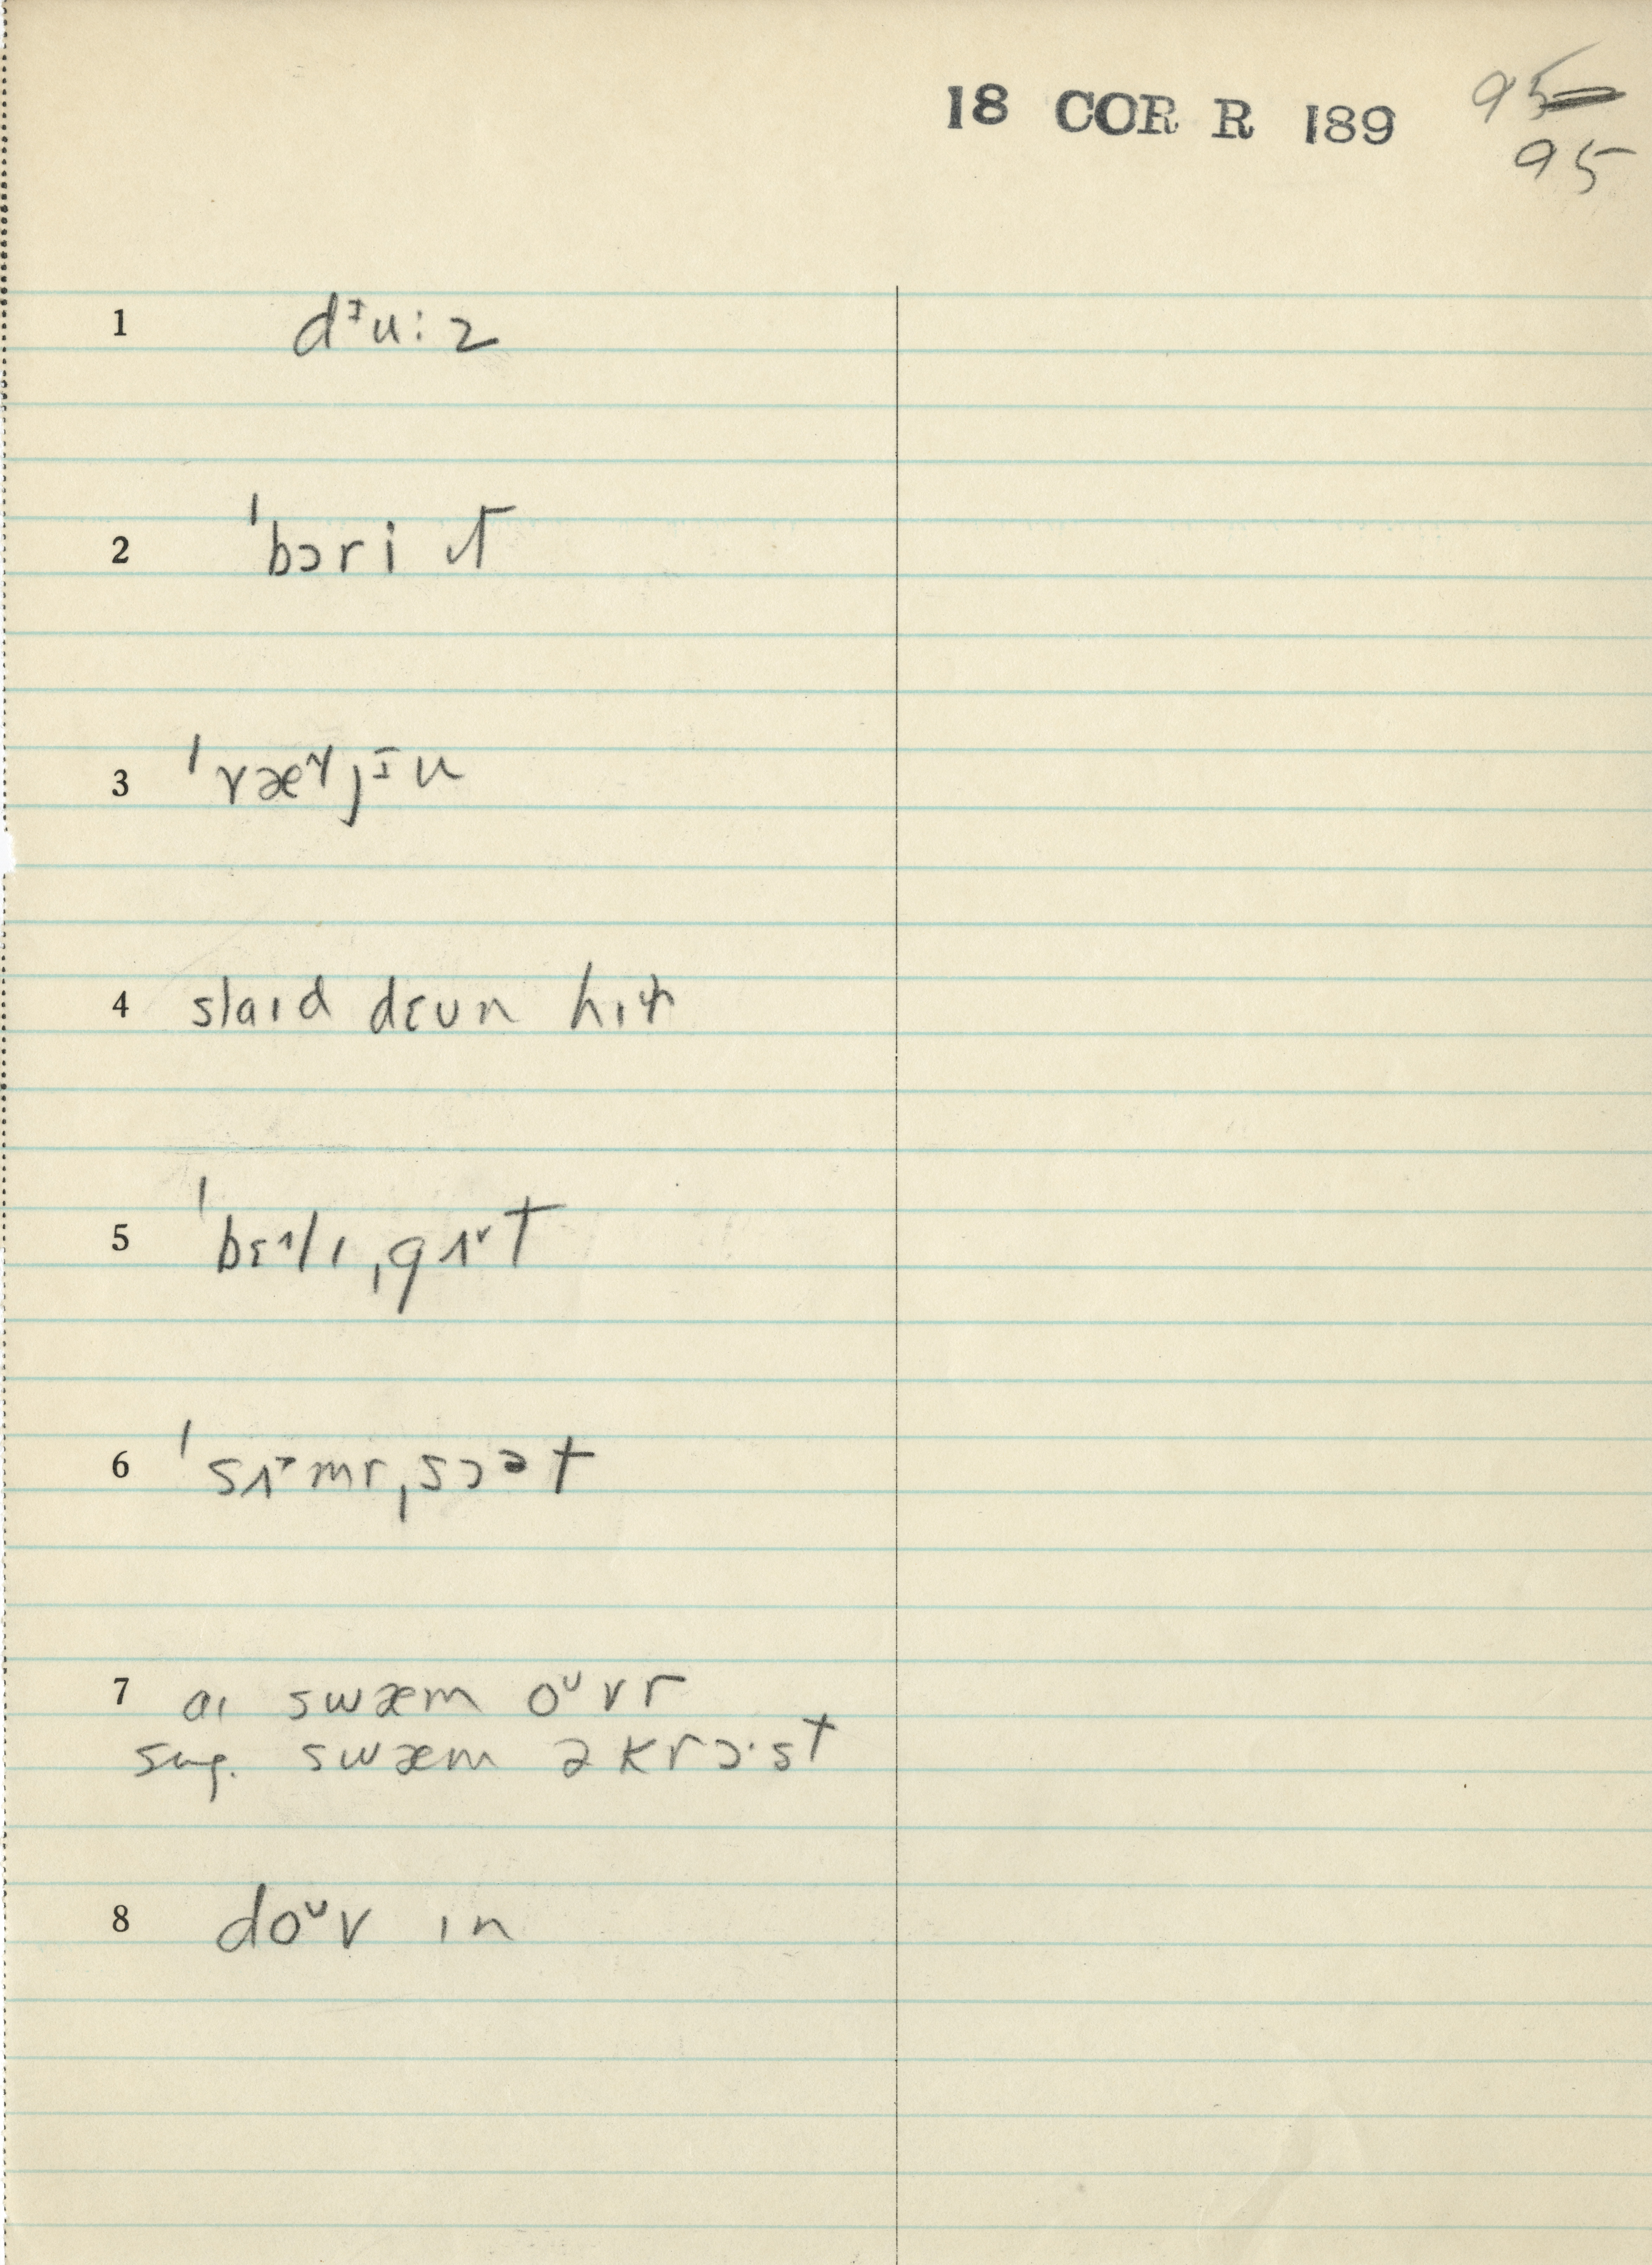 18 COR R 189 95
95
1 dᶤu:z
2 ˈbɔri ɪt
3 ˈvæᵛjᶤu
4 slaɪd dɛun hɪɫ
5 ˈbɛ^lɪˌgʌᵛt
6 ˈsʌmrˌsɔᵊt
7 aɪ swæm oᵘvr
sug. swæm əkrɔ·st
8 doᵘv ɪn